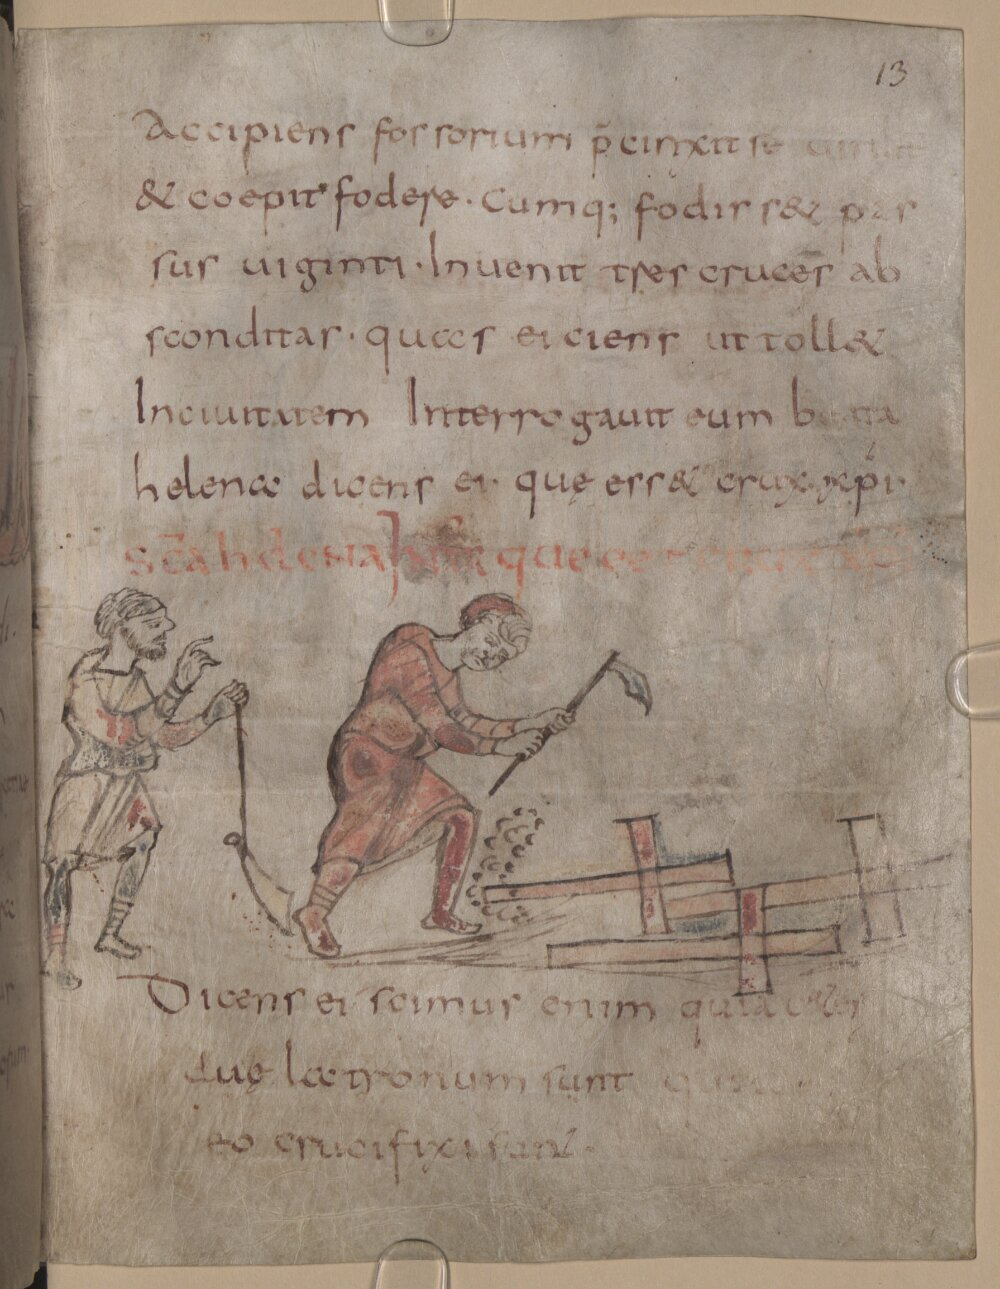 13
Accipiens fossorium p̄cinxit se
& coepit fodere · Cumq; fodiss&
sus uiginti · Inuenit tres cruces ab
sconditas · quas eiciens ut toll&
Inciuitatem Interrogauit eum beata
helena dicens ei · quę ess& crux xp̄i ·
sc̄a helena que
Dicens ei scimus enim quia
duę latronum sunt
eo crucifixi sunt ·